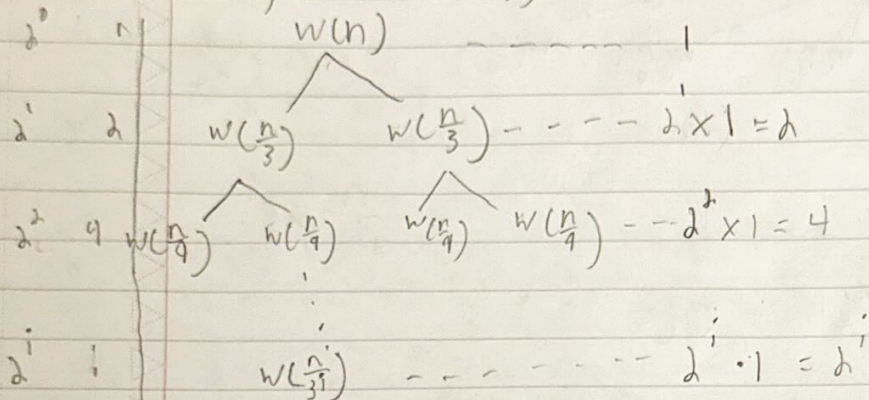 2⁰ n W(n) - - - - - 1
2¹ 2 W(n/3) W(n/3) - - - - 2¹ × 1 = 2
2² 4 W(n/9) W(n/9) W(n/9) W(n/9) - - - 2² × 1 = 4
2ⁱ W(n/3ⁱ) - - - - - - - 2ⁱ · 1 = 2ⁱ